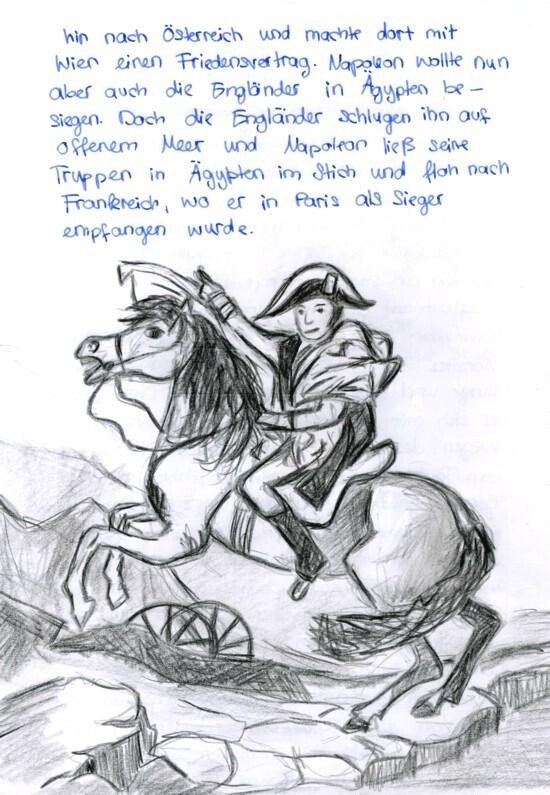 hin nach Österreich und machte dort mit
Wien einen Friedensvertrag. Napoleon wollte nun
aber auch die Engländer in Ägypten be-
siegen. Doch die Engländer schlugen ihn auf
offenem Meer und Napoleon ließ seine
Truppen in Ägypten im Stich und floh nach
Frankreich, wo er in Paris als Sieger
empfangen wurde.